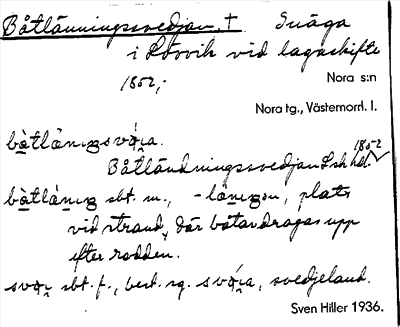 Båtlänningssvedjan. † Snäga
i Lövvik vid lagaskifte
1852,-
Nora s:n
Nora tg., Västernorrl. l.
bàtlä̀nıŋsvǫ́ıa.
1852
Båtländningssvedjan Lsk hdl.
bàtlä̀nıŋ sbt. m., -lä̀nıŋən, plats
vid strand, där båtar dragas upp
efter rodden.
sbt. f., best. sg. svedjeland.
Sven Hiller 1936.